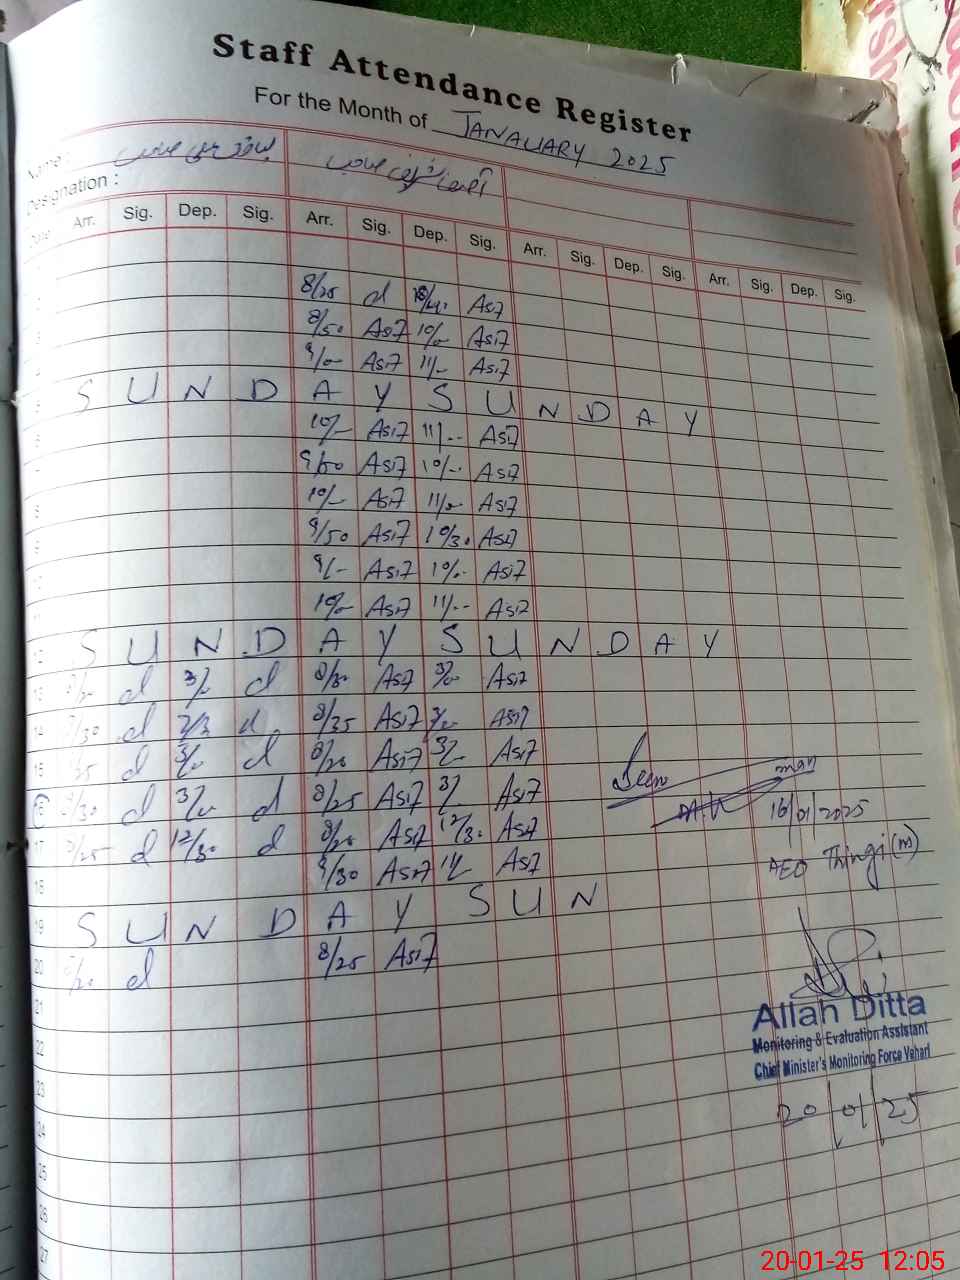 Staff Attendance Register
For the Month of JANAUARY 2025
Name :
Designation :
Date Arr. Sig. Dep. Sig. Arr. Sig. Dep. Sig. Arr. Sig. Dep. Sig. Arr. Sig. Dep. Sig.
8/25 d Asif
8/50 Asif 10/- Asif
9/- Asif 11/- Asif
5 S U N D A Y S U N D A Y
6 10/- Asif 11/- Asif
9/50 Asif 10/- Asif
8 10/- Asif 11/- Asif
9 9/50 Asif 10/30 Asif
9/- Asif 10/- Asif
10/- Asif 11/- Asif
12 S U N D A Y S U N D A Y
13 d 3/- d 8/30 Asif 3/- Asif
14 d d 8/35 Asif Asif
15 d 3/- d 8/20 Asif 3/- Asif
16 8/30 d 3/- d 8/25 Asif 3/- Asif
16/01/2025
17 8/25 d 12/30 d 8/20 Asif 12/30 Asif
AEO Thingi (m)
18 9/30 Asif Asif
19 S U N D A Y S U N
20 d 8/25 Asif
21
Allah Ditta
22
Monitoring & Evaluation Assistant
Chief Minister's Monitoring Force Vehari
23
20/01/25
24
25
26
27
20-01-25 12:05